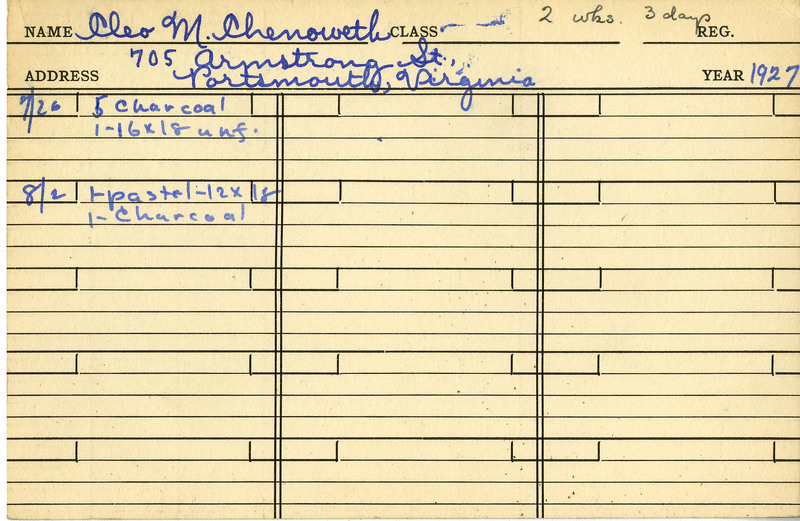 NAME Cleo M. Chenoweth CLASS 2 wks. 3 days REG.
705 Armstrong St.,
ADDRESS Portsmouth, Virginia YEAR 1927
7/26 5 Charcoal
1-16x18 unf.
8/2 1-pastel-12x18
1-Charcoal